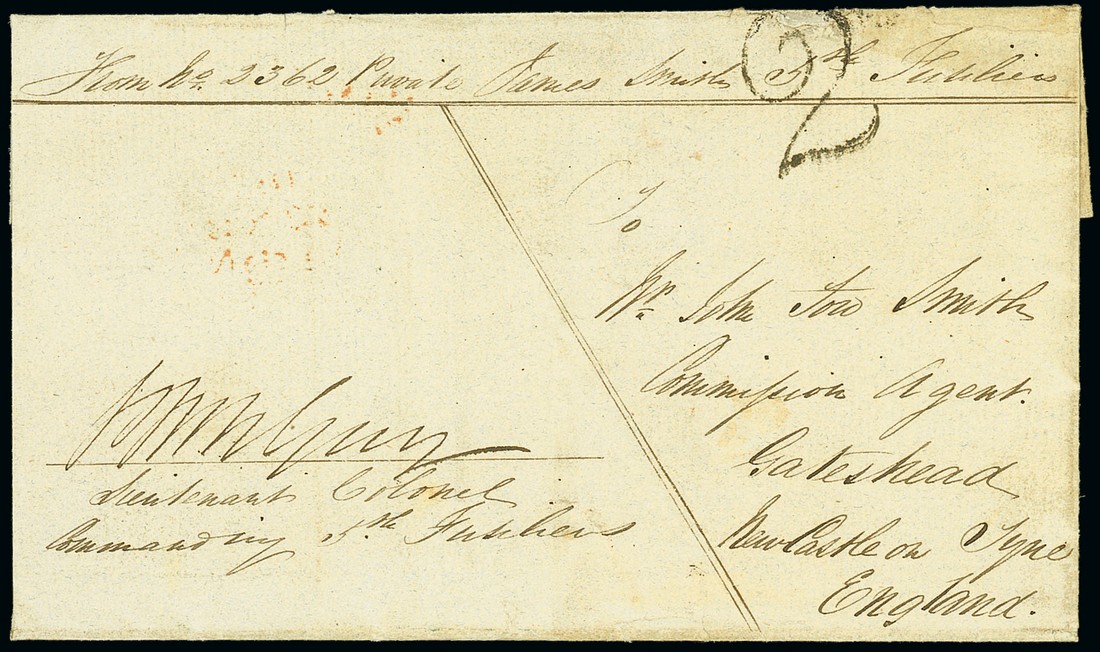 From No. 2362 Private James Smith 5th Fusiliers
2
To
Mr. John Tow Smith
Commission Agent.
Gateshead
New Castle on Tyne
England.
Lieutenant Colonel
Commanding 5th Fusiliers